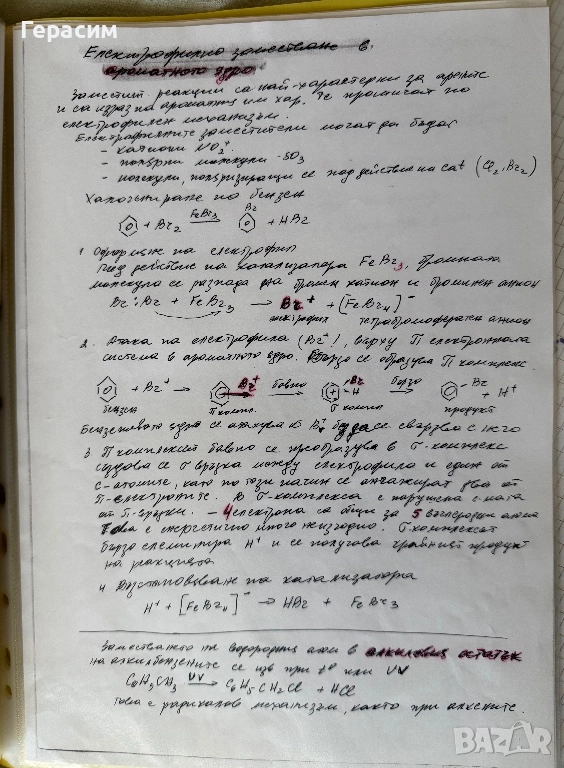 Герасим
Електрофилно заместване в
ароматното ядро
Заместит. реакции са най-характерни за арените
и са израз на ароматния им хар. Те протичат по
електрофилен механизъм.
Електрофилните заместители могат да бъдат
- катиони NO₂⁺
- полярни молекули SO₃
- молекули, поляризиращи се под действие на cat (Cl₂, Br₂)
Халогениране на бензен
+ Br₂ FeBr₃ → Br + HBr
1. Образуване на електрофил
Под действие на катализатора FeBr₃, бромната
молекула се разпада на бромен катион и бромиден анион
Br : Br + FeBr₃ → Br⁺ + [FeBr₄]⁻
електрофил тетрабромофератен анион
2. Атака на електрофила (Br⁺), върху П електронната
система в ароматното ядро. Бързо се образува П комплекс.
+ Br⁺ → Br⁺ бавно → Br H бързо → Br + H⁺
бензен П компл. σ компл. продукт
Бензеновото ядро се атакува от Br⁺ се свързва с него
3. П комплексът бавно се преобразува в σ-комплекс
създава се σ връзка между електрофила и един от
C-атомите, като по този начин се ангажират два от
П-електроните. В σ-комплекса е нарушена с-мата
от П-връзки. - 4 електрона са общи за 5 въглеродни атома
Това е енергетично много неизгодно. σ комплексът
бързо елиминира H⁺ и се получава крайният продукт
на реакцията
4. Възстановяване на катализатора
H⁺ + [FeBr₄]⁻ → HBr + FeBr₃
Заместването на водородния атом в алкиловия остатък
на алкилбензените се изв при t° или UV
C₆H₅CH₃ UV → C₆H₅CH₂Cl + HCl
Това е радикалов механизъм, както при алканите.
BAZAR